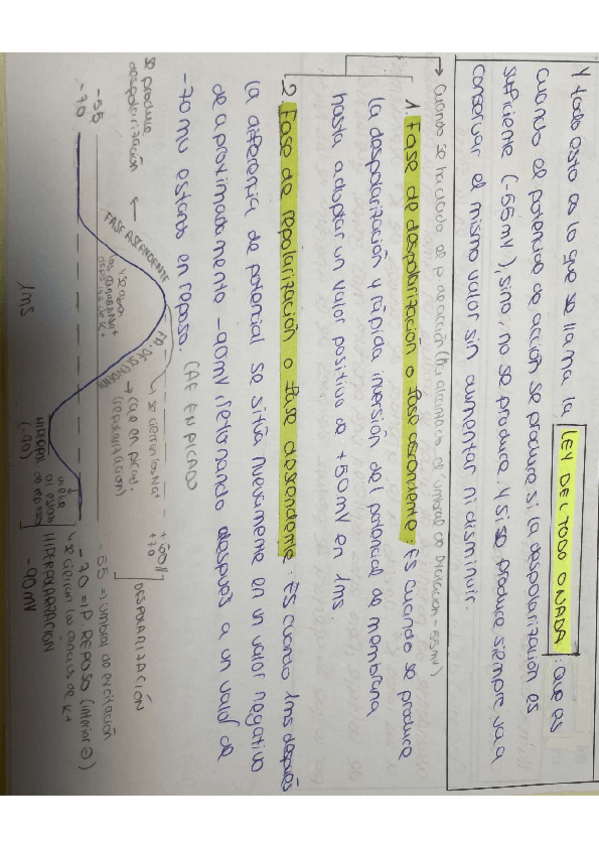 Y todo esto es lo que se llama la LEY DEL TODO O NADA: Que es
cuando el potencial de acción se produce si la despolarización es
suficiente (-55mV), sino, no se produce. Y si se produce siempre va a
conservar el mismo valor sin aumentar ni disminuir.
→ cuando se ha iniciado el p de acción (Ha alcanzado el umbral de excitación -55mV)
1. Fase de despolarización o fase ascendente: Es cuando se produce
la despolarización y rápida inversión del potencial de membrana
hasta adoptar un valor positivo de +50mV en 1ms.
2 Fase de repolarización o fase descendente: Es cuando 1ms después
la diferencia de potencial se sitúa nuevamente en un valor negativo
de aproximadamente -90mV, retornando después a un valor de
-70mV estando en reposo.
(AE EN PICADO)
se produce
despolarización ←
FASE ASCENDENTE
se abren
los canales Na+
FA. DESCENDENTE
→ se cierran los Na+
→ cae en picado
(repolarización)
DESPOLARIZACIÓN
-55
-70
-55 = Umbral de excitación
-70 = P. REPOSO (interior ⊖)
↳ se cierran los canales de K+
HIPERPOLARIZACIÓN
-90mV
(-90)
1ms